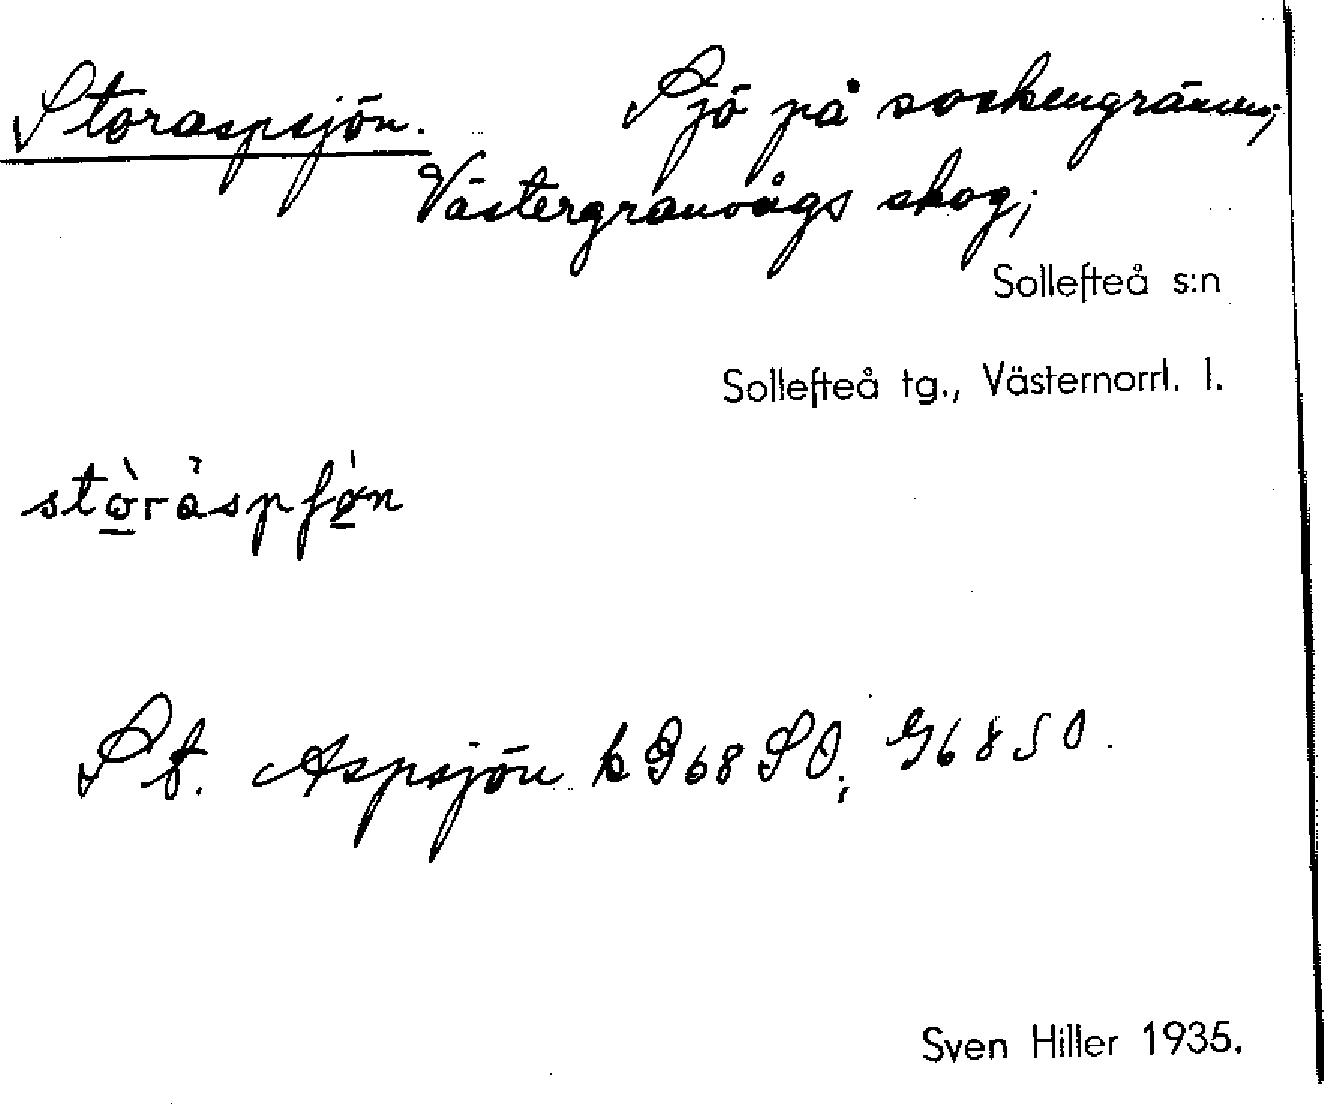 Storaspsjön. Sjö på sockengränsen;
Västergranvågs skog;
Sollefteå s:n
Sollefteå tg., Västernorrl. l.
St. Aspsjön k G68SO; G68SO.
Sven Hiller 1935.